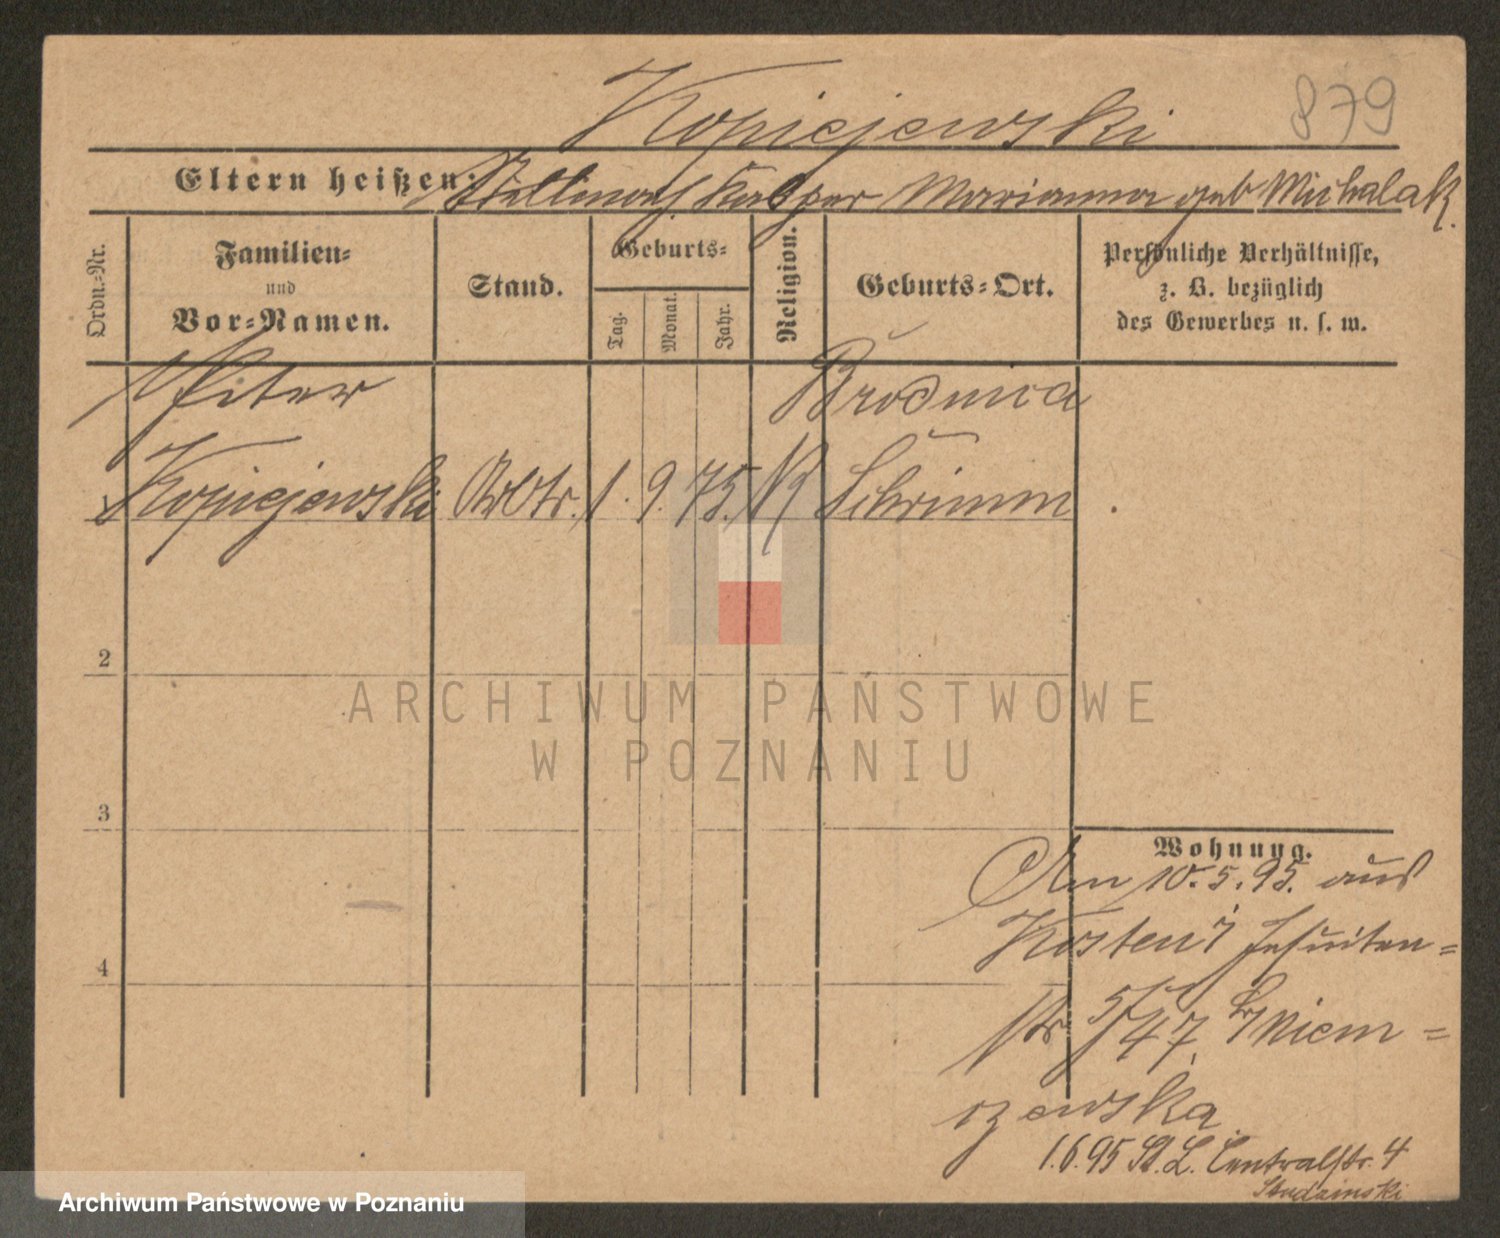 Kopiejewski 879
Eltern heißen: Stellmach Kasper Marianna geb Michalak.
Ordn.-Nr.
Familien-
und
Vor-Namen.
Stand.
Geburts-
Tag.
Monat.
Jahr.
Religion.
Geburts-Ort.
Persönliche Verhältnisse,
z. B. bezüglich
des Gewerbes u. s. w.
Peter Brodnica
Kopiejewski Arbtr. 1. 9. 75. K Schrimm
2
ARCHIWUM PAŃSTWOWE
W POZNANIU
3
Wohnung.
Am 10.5.95. aus
Kosten Jesuiten=
4
str 5/47, Niem=
czewska
1.6.95 St. L. Centralstr. 4
Studzinski
Archiwum Państwowe w Poznaniu